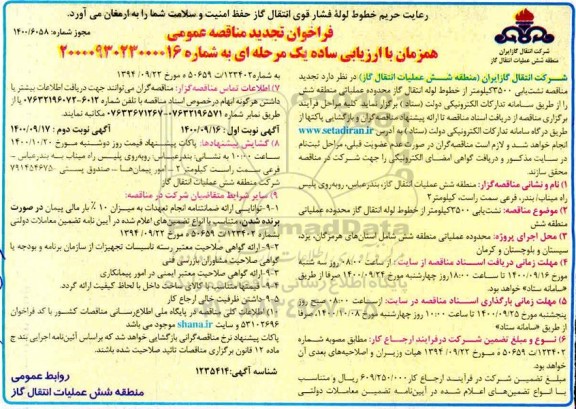 رعایت حریم خطوط لولهٔ فشار قوی انتقال گاز حفظ امنیت و سلامت شما را به ارمغان می آورد.
مجوز شماره: ۱۴۰۰/۶۰۵۸
شرکت انتقال گاز ایران
منطقه شش عملیات انتقال گاز
فراخوان تجدید مناقصه عمومی
همزمان با ارزیابی ساده یک مرحله ای به شماره ۲۰۰۰۰۹۳۰۲۳۰۰۰۰۱۶
شرکت انتقال گاز ایران (منطقه شش عملیات انتقال گاز) در نظر دارد تجدید
مناقصه نشت‌یابی ۳۵۰۰کیلومتر از خطوط لوله انتقال گاز محدوده عملیاتی منطقه شش
را از طریق سامانه تدارکات الکترونیکی دولت (ستاد) برگزار نماید کلیه مراحل فرآیند
برگزاری مناقصه از دریافت اسناد مناقصه تا ارائه پیشنهاد مناقصه گران و بازگشایی پاکتها از
طریق درگاه سامانه تدارکات الکترونیکی دولت (ستاد) به آدرس www.setadiran.ir
انجام خواهد شد و لازم است مناقصه‌گران در صورت عدم عضویت قبلی، مراحل ثبت‌نام
در سایت مذکور و دریافت گواهی امضای الکترونیکی را جهت شرکت در مناقصه
محقق سازند.
۱) نام و نشانی مناقصه‌گزار: منطقه شش عملیات انتقال گاز، بندرعباس، روبه‌روی پلیس
راه میناب/ بندر، فرعی سمت راست، کیلومتر۲
۲) موضوع مناقصه: نشت‌یابی ۳۵۰۰کیلومتر از خطوط لوله انتقال گاز محدوده عملیاتی
منطقه شش
۳) محل اجرای پروژه: محدوده عملیاتی منطقه شش شامل استان های هرمزگان، یزد،
سیستان و بلوچستان و کرمان
۴) مهلت زمانی دریافت اسناد مناقصه از سایت: از ساعت ۰۸:۰۰ روز سه شنبه
۱۴۰۰/۰۹/۱۶ تا ساعت ۱۸:۰۰ روز چهارشنبه مورخ ۱۴۰۰/۰۹/۲۴ صرفا از طریق
«سامانه ستاد» خواهد بود.
۵) مهلت زمانی بارگذاری اسناد مناقصه در سایت: از ساعت ۰۸:۰۰ روز
پنجشنبه مورخ ۱۴۰۰/۰۹/۲۵ تا ساعت ۱۰:۰۰ روز چهارشنبه مورخ ۱۴۰۰/۱۰/۰۸، صرفا
از طریق «سامانه ستاد»
۶) نوع و مبلغ تضمین شرکت در فرآیند ارجاع کار: مطابق مصوبه شماره
۱۲۳۴۰۲/ت۵۰۶۵۹ ه مورخ ۱۳۹۴/۰۹/۲۲ هیات وزیران و اصلاحیه‌های بعدی آن
خواهد بود.
مبلغ تضمین شرکت در فرآیند ارجاع کار ۶۰۹/۲۵۰/۰۰۰ ریال و متناسب
با انواع تضمین‌های اعلام شده در آیین‌نامه تضمین معاملات دولتی
به شماره ۱۲۳۴۰۲/ت۵۰۶۵۹ ه مورخ ۱۳۹۴/۰۹/۲۲
۷) اطلاعات تماس مناقصه گزار: مناقصه‌گران می‌توانند جهت دریافت اطلاعات بیشتر یا
داشتن هرگونه ابهام درخصوص اسناد مناقصه با تلفن شماره ۶۰۱۲-۰۷۶۳۲۱۹۶۰۷۲ و یا از
طریق نمابر شماره ۰۷۶۳۲۱۹۶۵۷۱-۰۷۶۳۳۶۷۱۲۶۷ مکاتبه نمایند.
آگهی نوبت اول : ۱۴۰۰/۰۹/۱۶ آگهی نوبت دوم : ۱۴۰۰/۰۹/۱۷
۸) گشایش پیشنهادها: پاکات پیشنهاد قیمت روز دوشنبه مورخ ۱۴۰۰/۱۰/۲۰
ساعت ۱۰:۰۰ به نشانی: بندرعباس، روبه‌روی پلیس راه میناب به بندرعباس -
فرعی سمت راست کیلومتر ۲ - امور پیمان‌ها - صندوق پستی ۷۹۱۴۵۴۶۷۵-
شرکت منطقه شش عملیات انتقال گاز
۹) سایر شرایط متقاضیان شرکت در مناقصه:
۹-۱- توانایی ارائه ضمانتنامه انجام تعهدات به میزان ۱۰٪ بار مالی پیمان در صورت
برنده شدن، متناسب با انواع تضمین‌های اعلام شده در آیین نامه تضمین معاملات دولتی
شماره ۱۲۳۴۰۲/ت۵۰۶۵۹ ه مورخ ۱۳۹۴/۰۹/۲۲
۹-۲- ارائه گواهی صلاحیت معتبر رسته تاسیسات تجهیزات از سازمان برنامه و بودجه یا
گواهی صلاحیت مشاوران بازرسی فنی
۹-۳- ارائه گواهی صلاحیت معتبر ایمنی در امور پیمانکاری
۹-۴- قیمتها متناسب با کالای ساخت داخل با لحاظ کیفیت لازم ارائه گردد.
۹-۵- داشتن ظرفیت خالی ارجاع کار
۱۰) اطلاعات کلی مناقصه در پایگاه ملی اطلاع‌رسانی مناقصات کشور با کد فراخوان
۵۳۱۰۲۶۹۶ و سایت shana.ir موجود می باشد
پاکات پیشنهاد نرخ مناقصه‌گرانی بازگشایی خواهد شد که براساس آئین‌نامه اجرایی بند ج
ماده ۱۲ قانون برگزاری مناقصات تائید صلاحیت شده باشند.
شناسه آگهی: ۱۲۳۵۴۱۴
روابط عمومی
منطقه شش عملیات انتقال گاز